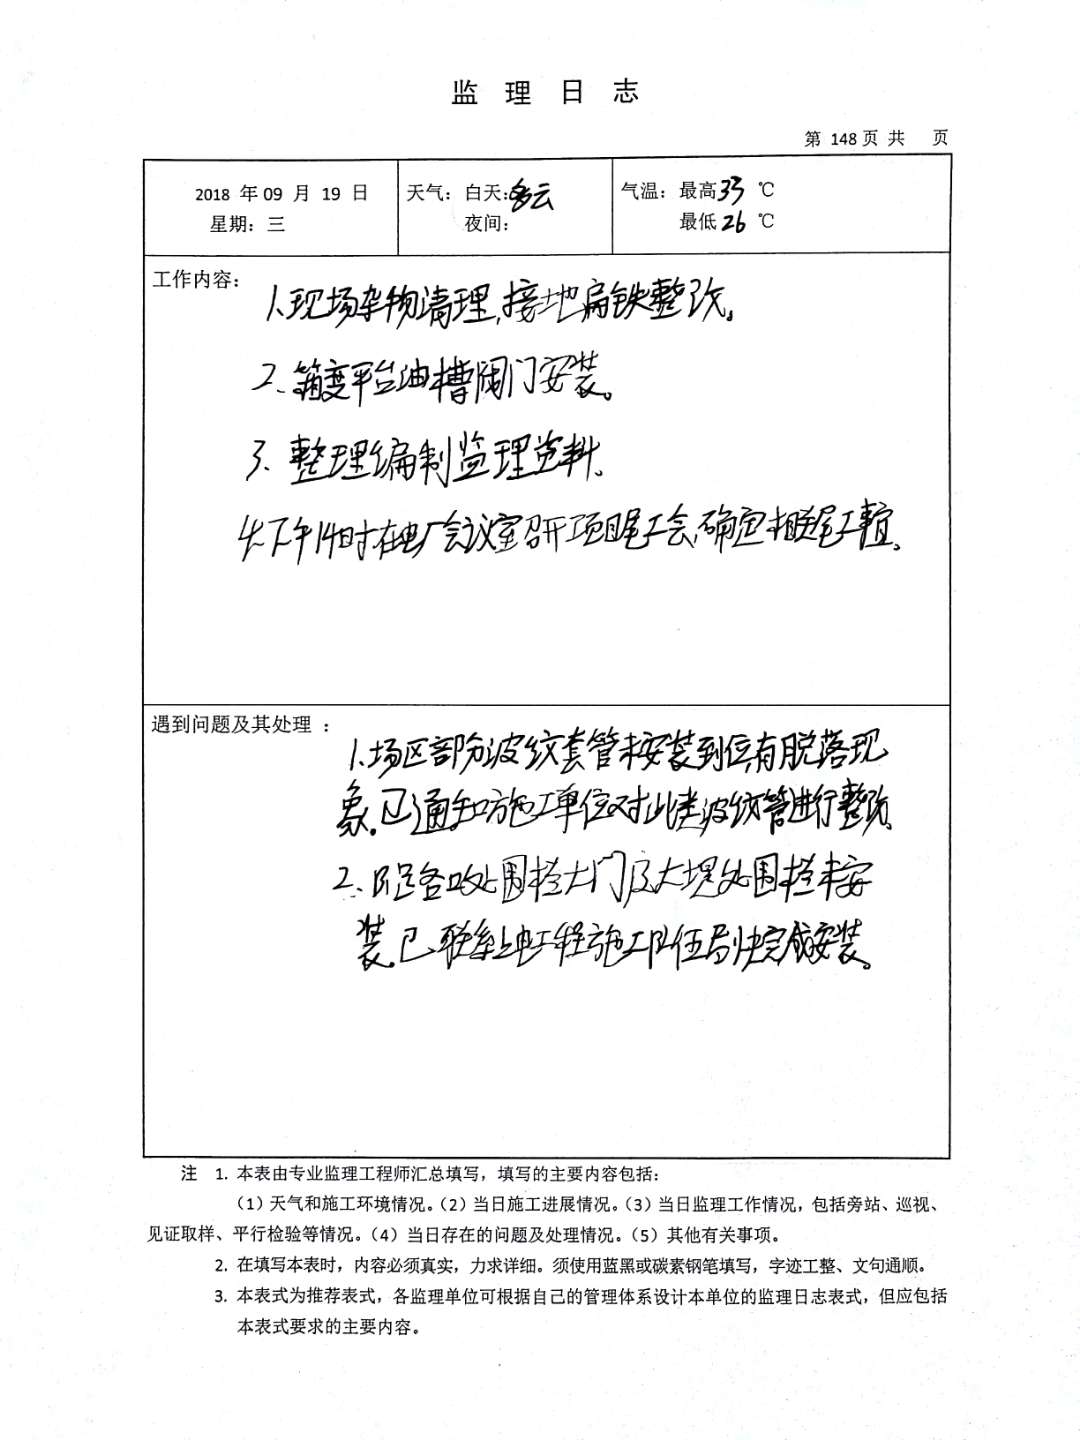 监 理 日 志
第 148页 共 页
2018 年 09 月 19 日
星期：三
天气：白天:多云
夜间：
气温：最高33 ℃
最低26 ℃
工作内容：
1.现场杂物清理,接地扁铁整改。
2、箱变平台油槽阀门安装。
3、整理编制监理资料、
4、下午14时在电厂会议室召开项目尾工会,确定相关尾工事宜。
遇到问题及其处理 ：
1.场区部分波纹套管未安装到位有脱落现
象.已通知施工单位对此类波纹管进行整改.
2、处围栏大门及大堤处围栏未安
装.已联系工程施工队伍尽快完成安装。
注 1. 本表由专业监理工程师汇总填写，填写的主要内容包括：
（1）天气和施工环境情况。（2）当日施工进展情况。（3）当日监理工作情况，包括旁站、巡视、
见证取样、平行检验等情况。（4）当日存在的问题及处理情况。（5）其他有关事项。
2. 在填写本表时，内容必须真实，力求详细。须使用蓝黑或碳素钢笔填写，字迹工整、文句通顺。
3. 本表式为推荐表式，各监理单位可根据自己的管理体系设计本单位的监理日志表式，但应包括
本表式要求的主要内容。